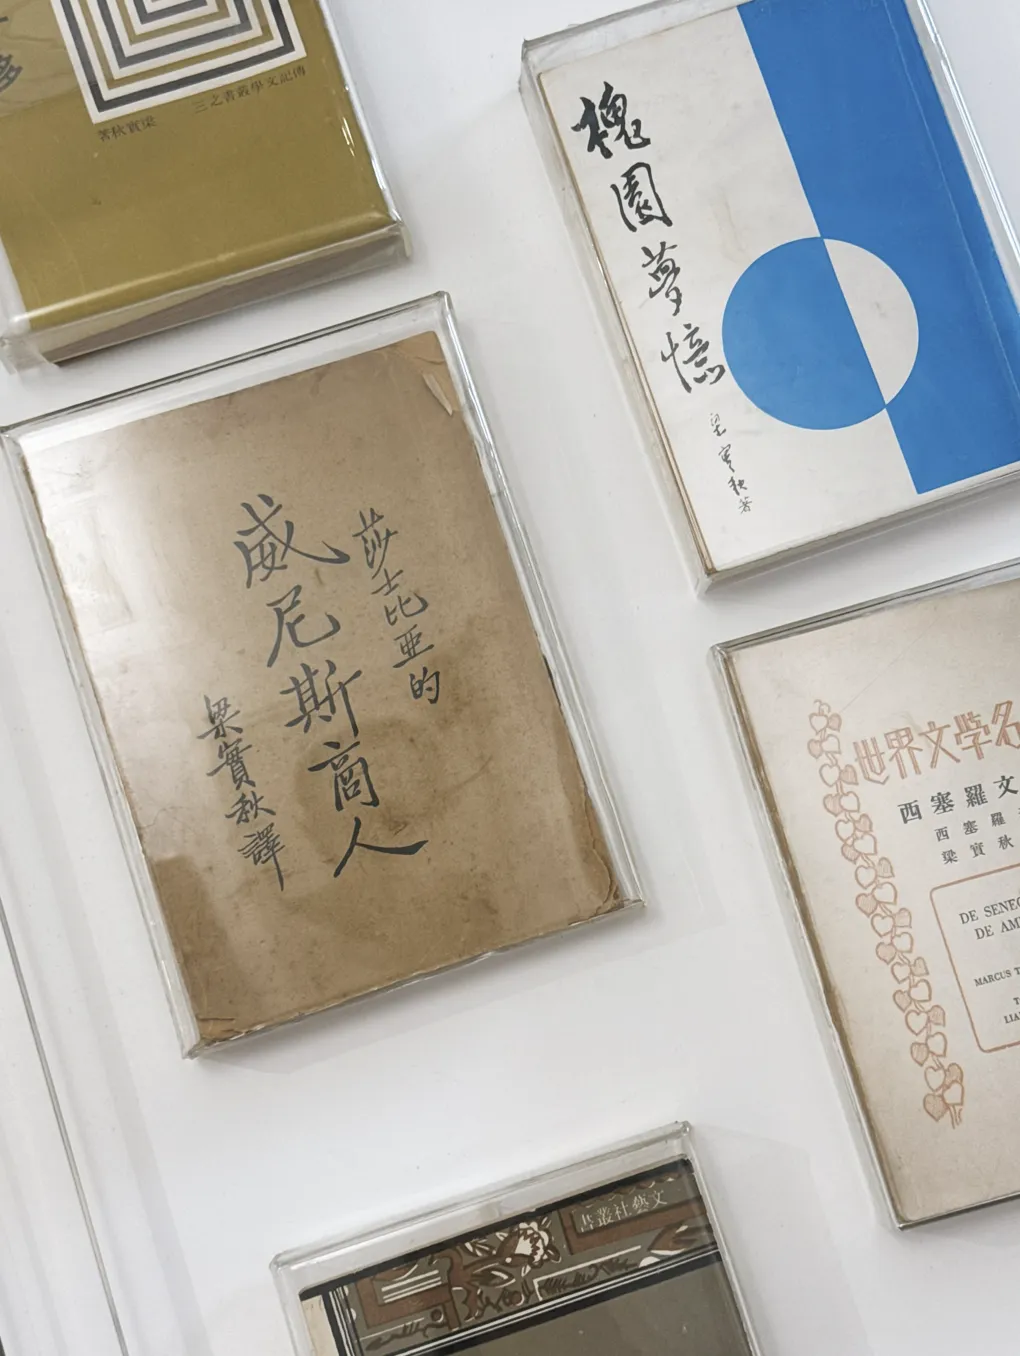 傳記文學叢書之三
梁實秋著
槐園夢憶
梁實秋著
莎士比亞的
威尼斯商人
梁實秋譯
世界文學名
西塞羅文
西塞羅
梁實秋
DE SENEC
DE AM
MARCUS T
文藝社叢書